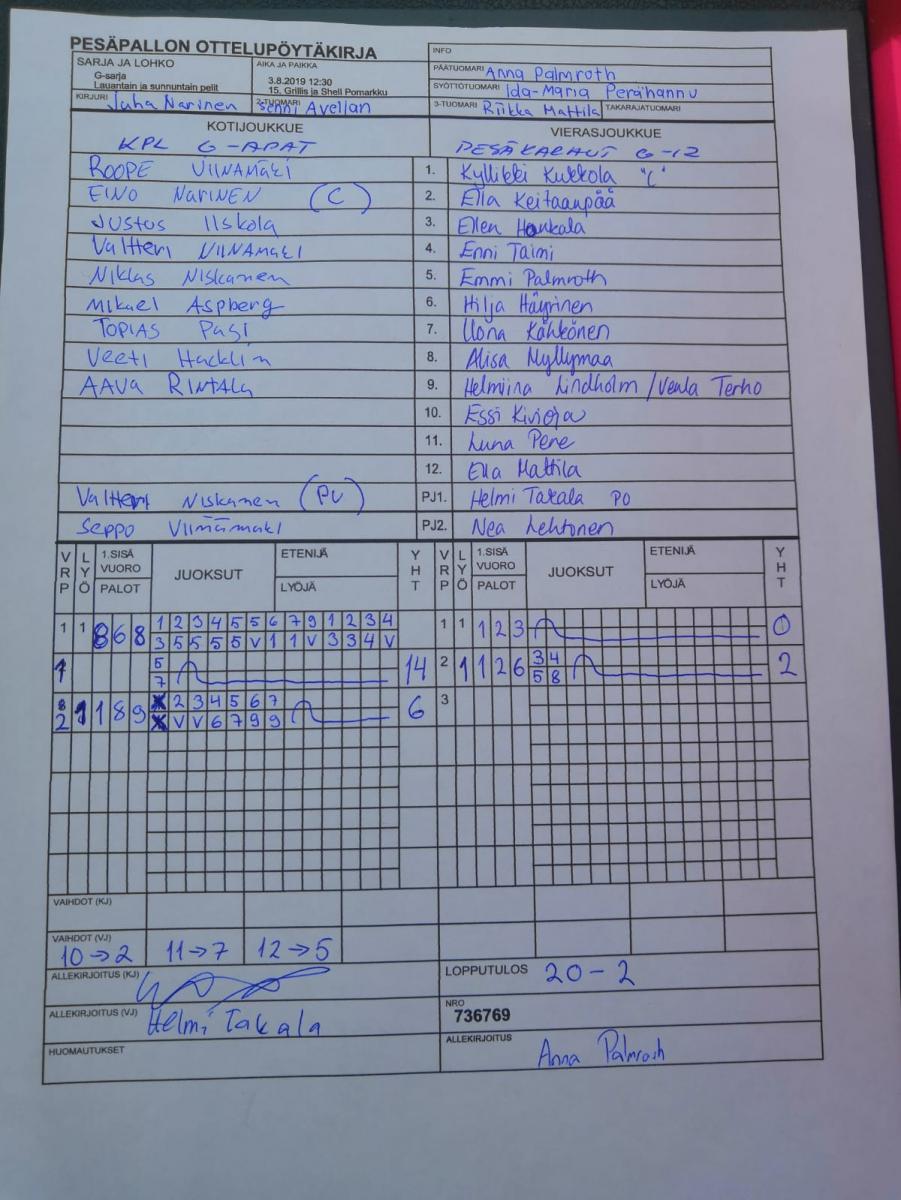 PESÄPALLON OTTELUPÖYTÄKIRJA
INFO
SARJA JA LOHKO
G-sarja
Lauantain ja sunnuntain pelit
AIKA JA PAIKKA
3.8.2019 12:30
15. Grillis ja Shell Pomarkku
PÄÄTUOMARI Anna Palmroth
SYÖTTÖTUOMARI Ida-Maria Perähannu
KIRJURI Juha Narinen
2-TUOMARI Senni Avellan
3-TUOMARI Riikka Mattila
TAKARAJATUOMARI
KOTIJOUKKUE
KPL G-APAT
VIERASJOUKKUE
PESÄKARHUT G-12
ROOPE VIINAMÄKI 1. Kyllikki Kukkola "C"
EINO NARINEN (C) 2. Ella Keitaanpää
JUSTUS IISKOLA 3. Ellen Honkala
Valtteri VIINAMÄKI 4. Enni Taimi
NIKLAS NISKANEN 5. Emmi Palmroth
MIKAEL Aspberg 6. Hilja Häyrinen
TOPIAS Pasi 7. Ilona Kähkönen
VEETI HACKLIN 8. Alisa Myllymaa
AAVA RINTALA 9. Helmiina Lindholm / Venla Terho
10. Essi Kivioja
11. Luna Pene
12. Ella Mattila
Valtteri NISKANEN (PV) PJ1. Helmi Takala PO
SEPPO VIINAMÄKI PJ2. Nea Lehtonen
VRP LYÖ 1.SISÄ VUORO PALOT JUOKSUT ETENIJÄ LYÖJÄ YHT VRP LYÖ 1.SISÄ VUORO PALOT JUOKSUT ETENIJÄ LYÖJÄ YHT
1 1 8 6 8 1 2 3 4 5 5 6 7 9 1 2 3 4 1 1 1 2 3 0
3 5 5 5 5 V 1 1 V 3 3 4 V
1 5 14 2 1 1 2 6 3 4 2
7 5 8
2 1 1 8 9 2 3 4 5 6 7 6 3
V V 6 7 9 9
VAIHDOT (KJ)
VAIHDOT (VJ)
10→2 11→7 12→5
ALLEKIRJOITUS (KJ)
LOPPUTULOS 20-2
ALLEKIRJOITUS (VJ) Helmi Takala
NRO
736769
HUOMAUTUKSET
ALLEKIRJOITUS Anna Palmroth